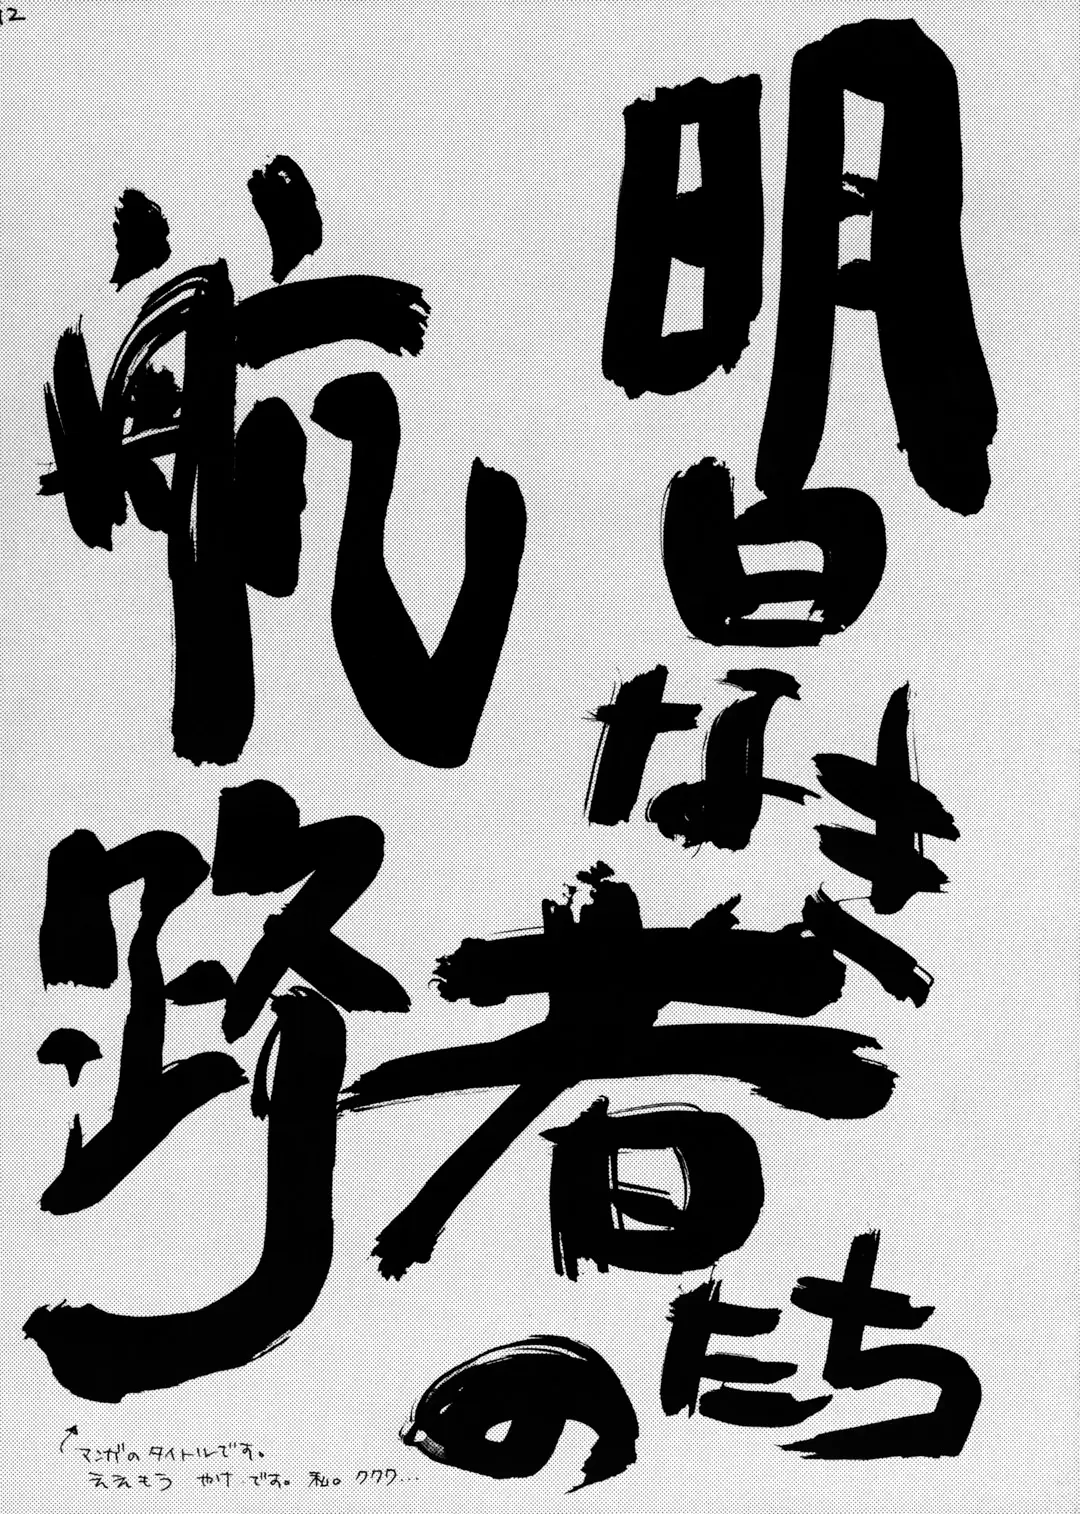 12
明日なき
者たちの
航路
マンガのタイトルです。
ええもう やけです。私。ククク…